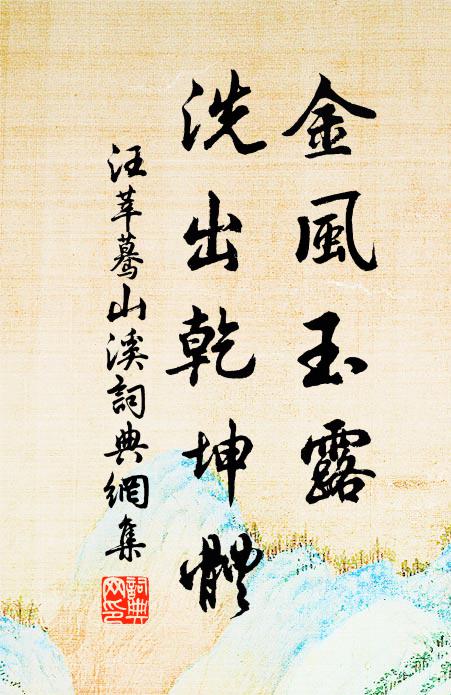 金風玉露
洗出乾坤體
汪莘驀山溪詞典網集
詞典网印